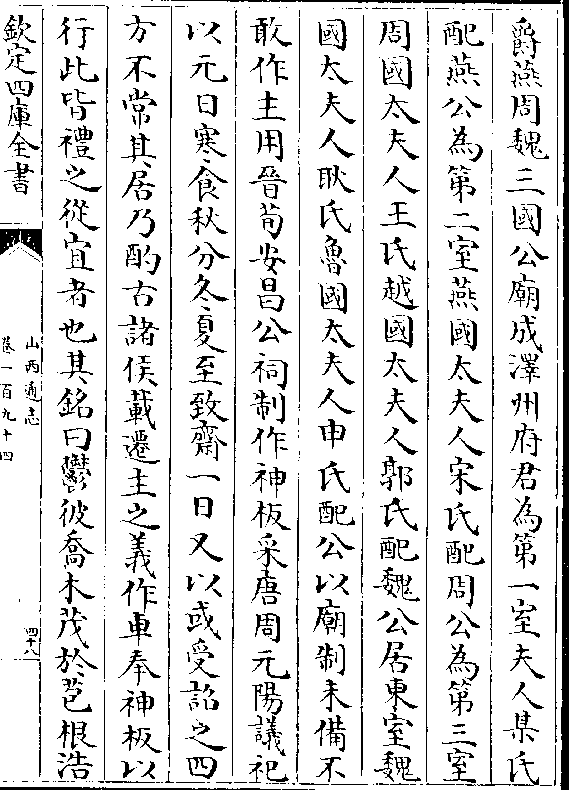 爵燕周魏三國公廟成澤州府君為第一室夫人某氏
配燕公為第二室燕國太夫人宋氏配周公為第三室
周國太夫人王氏越國太夫人郭氏配魏公居東室魏
國太夫人耿氏魯國太夫人申氏配公以廟制未備不
敢作主用晉荀安昌公祠制作神板采唐周元陽議祀
以元日寒食秋分冬夏至致齋一日又以或受詔之四
方不常其居乃酌古諸侯載遷主之義作車奉神板以
行此皆禮之從宜者也其銘曰鬱彼喬木茂於苞根浩
欽定四庫全書
山西通志
卷一百九十四
四十八